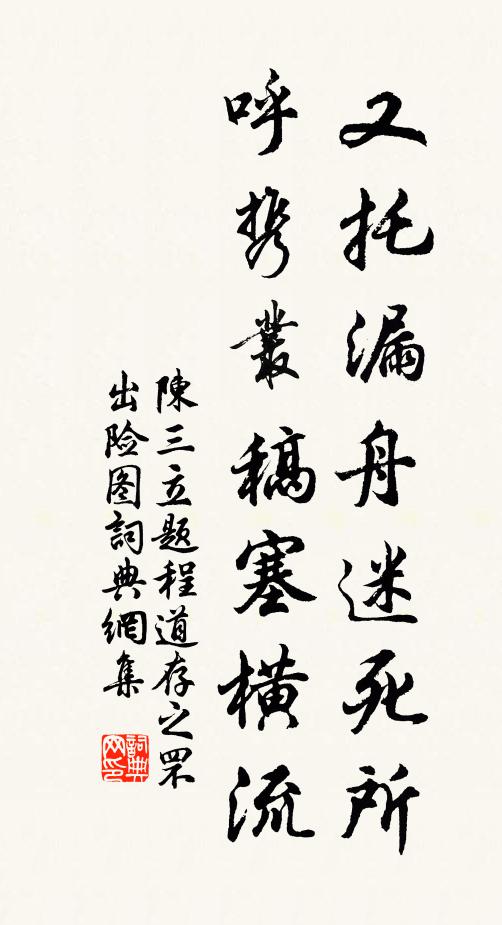 又托漏舟迷死所
呼携叢稿塞橫流
陳三立题程道存之罘
出险图詞典網集
詞典网印